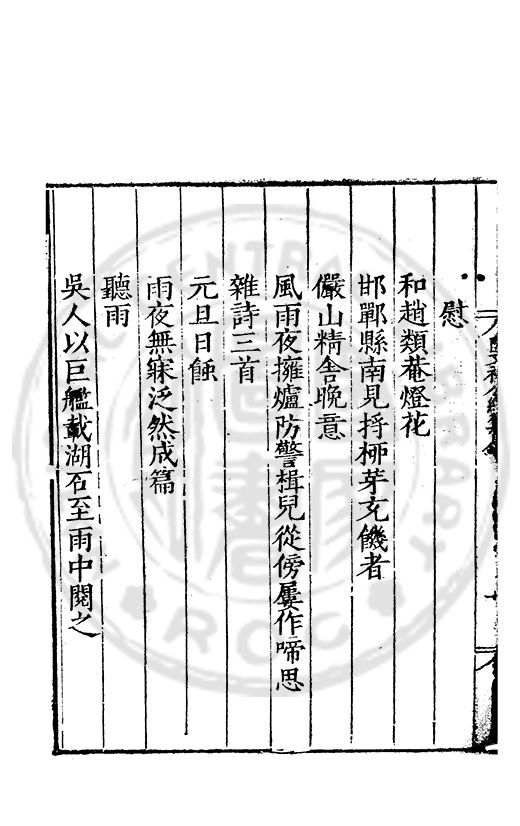 慰
和趙類菴燈花
邯鄲縣南見捋桺芽充饑者
儼山精舎晚意
風雨夜擁爐防警楫兒從傍屢作啼思
雜詩三首
元旦日蝕
雨夜無寐泛然成篇
聽雨
吳人以巨艦載湖石至雨中閱之
CENTRAL LIBRARY
ROC